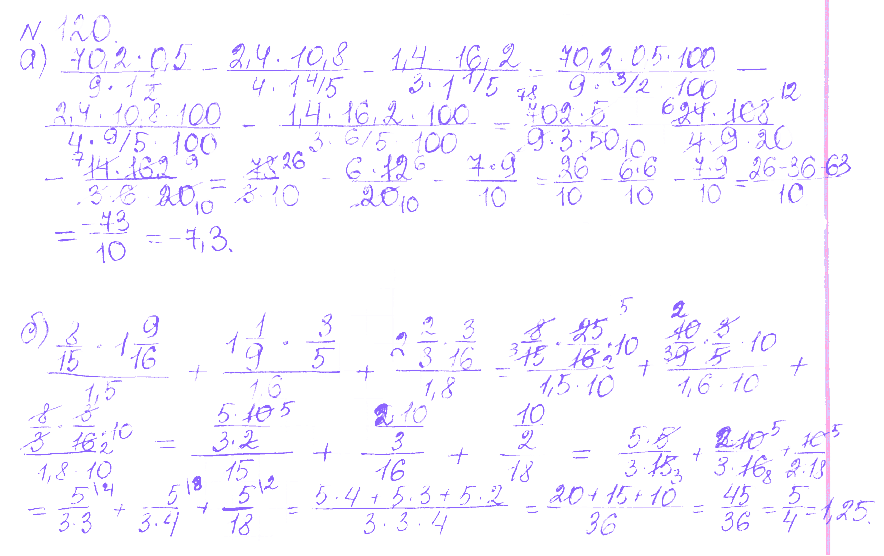 N 120.
а) (70,2 · 0,5)/(9 · 1 1/2) − (2,4 · 10,8)/(4 · 1 4/5) − (1,4 · 16,2)/(3 · 1 1/5) = (70,2 · 0,5 · 100)/(9 · 3/2 · 100) −
(2,4 · 10,8 · 100)/(4 · 9/5 · 100) − (1,4 · 16,2 · 100)/(3 · 6/5 · 100) = (702 · 5)/(9 · 3 · 50) − (24 · 108)/(4 · 9 · 20)
− (14 · 162)/(3 · 6 · 20) = (78 26)/(3 · 10) − (6 · 12 6)/(20 10) − (7 · 9)/10 = 26/10 − (6·6)/10 − (7·9)/10 = (26-36-63)/10
= −73/10 = −7,3.
б) (8/15 · 1 9/16)/1,5 + (1 1/9 · 3/5)/1,6 + (2 2/3 · 3/16)/1,8 = (8/15 · 25/16 · 10)/(1,5 · 10) + (10/9 · 3/5 · 10)/(1,6 · 10) +
(8/3 · 3/16 · 10)/(1,8 · 10) = ((5 · 10 5)/(3 · 2))/15 + (2 10/3)/16 + (10/2)/18 = (5 · 5)/(3 · 15 3) + (2 10 5)/(3 · 16 8) + (10 5)/(2 · 18)
= 5/(3·3) \4 + 5/(3·4) \3 + 5/18 \2 = (5 · 4 + 5 · 3 + 5 · 2)/(3 · 3 · 4) = (20 + 15 + 10)/36 = 45/36 = 5/4 = 1,25.